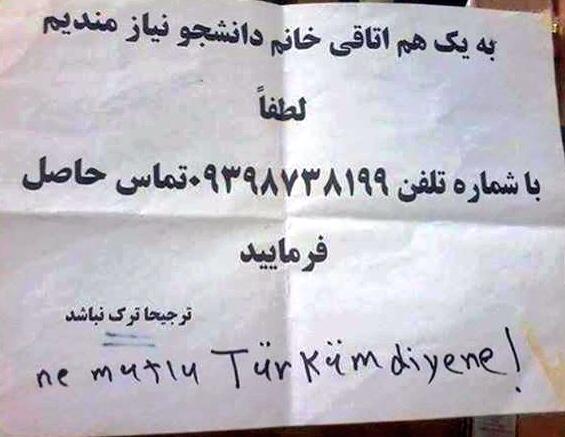 به یک هم اتاقی خانم دانشجو نیاز مندیم
لطفاً
با شماره تلفن ۰۹۳۹۸۷۳۸۱۹۹تماس حاصل
فرمایید
ترجیحا ترک نباشد
ne mutlu Türküm diyene!